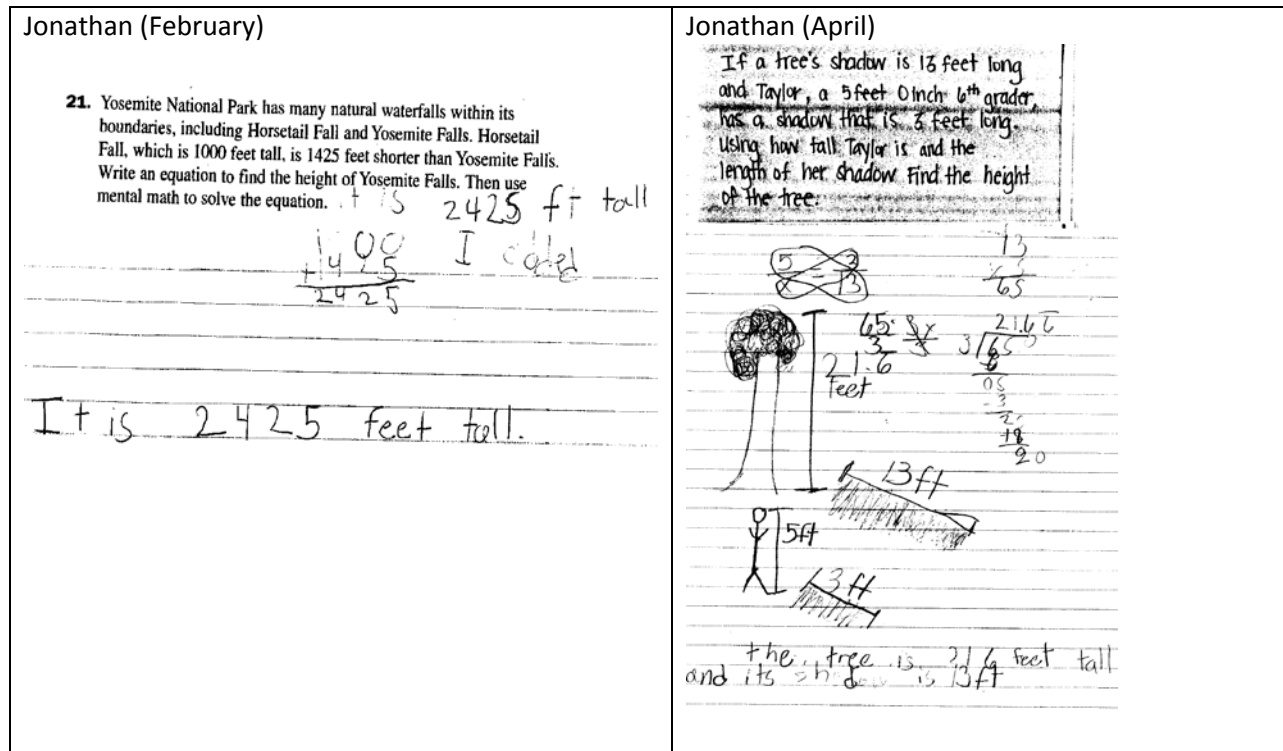 Jonathan (February)
21. Yosemite National Park has many natural waterfalls within its
boundaries, including Horsetail Fall and Yosemite Falls. Horsetail
Fall, which is 1000 feet tall, is 1425 feet shorter than Yosemite Falls.
Write an equation to find the height of Yosemite Falls. Then use
mental math to solve the equation.
is 2425 ft tall
I
+1425
2425
It is 2425 feet tall.
Jonathan (April)
If a tree's shadow is 13 feet long
and Taylor, a 5 feet 0 inch 6th grader,
has a shadow that is 3 feet long.
Using how tall Taylor is and the
length of her shadow Find the height
of the tree.
5 3
x = 13
13
65
65 = 3x
3 3
21.6
feet
21.6
3 65
05
-3
2
18
20
13ft
5ft
3ft
the tree is 21.6 feet tall
and its is 13ft